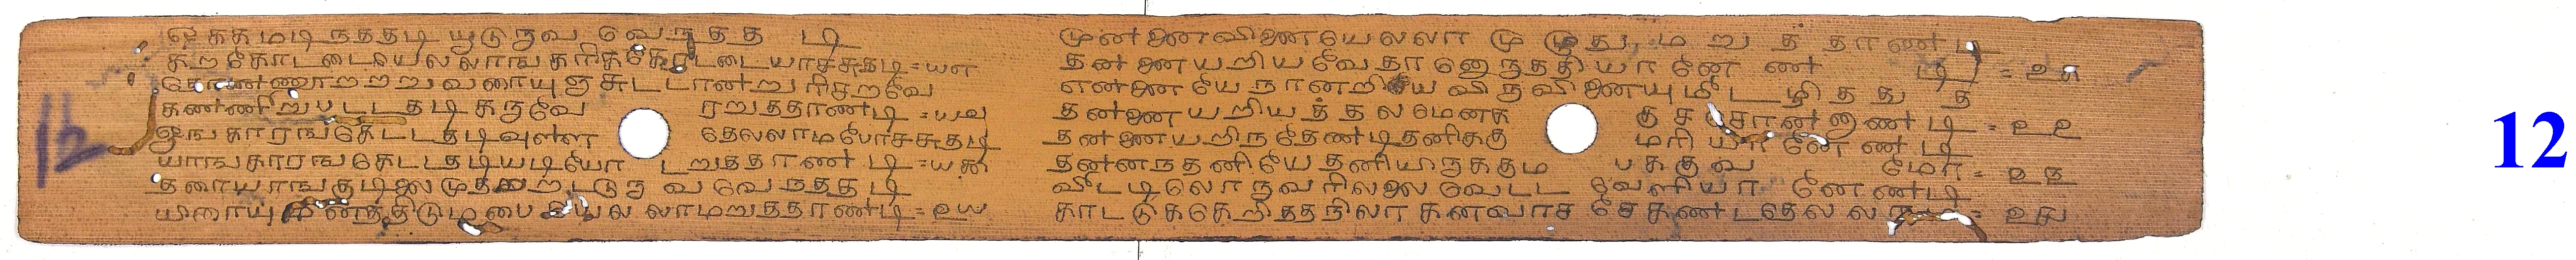 ஒககமடிநததடி யூடுருவ வெநதத டி
கறகோடடையெலலாஙகரிககோடடையாசசுதடி=௰௭
தொணணூறறறுவரையுஞசுடடானறுரிசறவே
கணணிறுபடடதடிகருவே ரறுததாணடி=௰௮
ஓஙகாரஙகெடடதடிவுளள தெலலாமபோசசுதடி
யாஙகாரஙகெடடதடியடியோ டறுததாணடி=௰௯
தரையாஙகுடிலைமுதறறடடுருவவெநததடி
யிரையுமனததிடுமபையெலலாமறுததாணடி=௨௰
முனனைவினையெலலா முழுது மறுத தாணடி
தனனையறியவேதானொருததியானேணடி=௨௧
எனனையேநானறியேயிருவினையுமீடழிதது த
தனனையறியத தலமெனககு சசொனனாணடி=௨௨
தனனையறிநதேணடிதனிககு மரியானேணடி
தனனநதனியேதனியிருககும பககுவ மோ=௨௩
வீடடிலொருவரிலலைவெடட வெளியா னேணடி
காடடுககெறிததநிலாகனவாசசேகணடதெலலா=௨௪
12
12